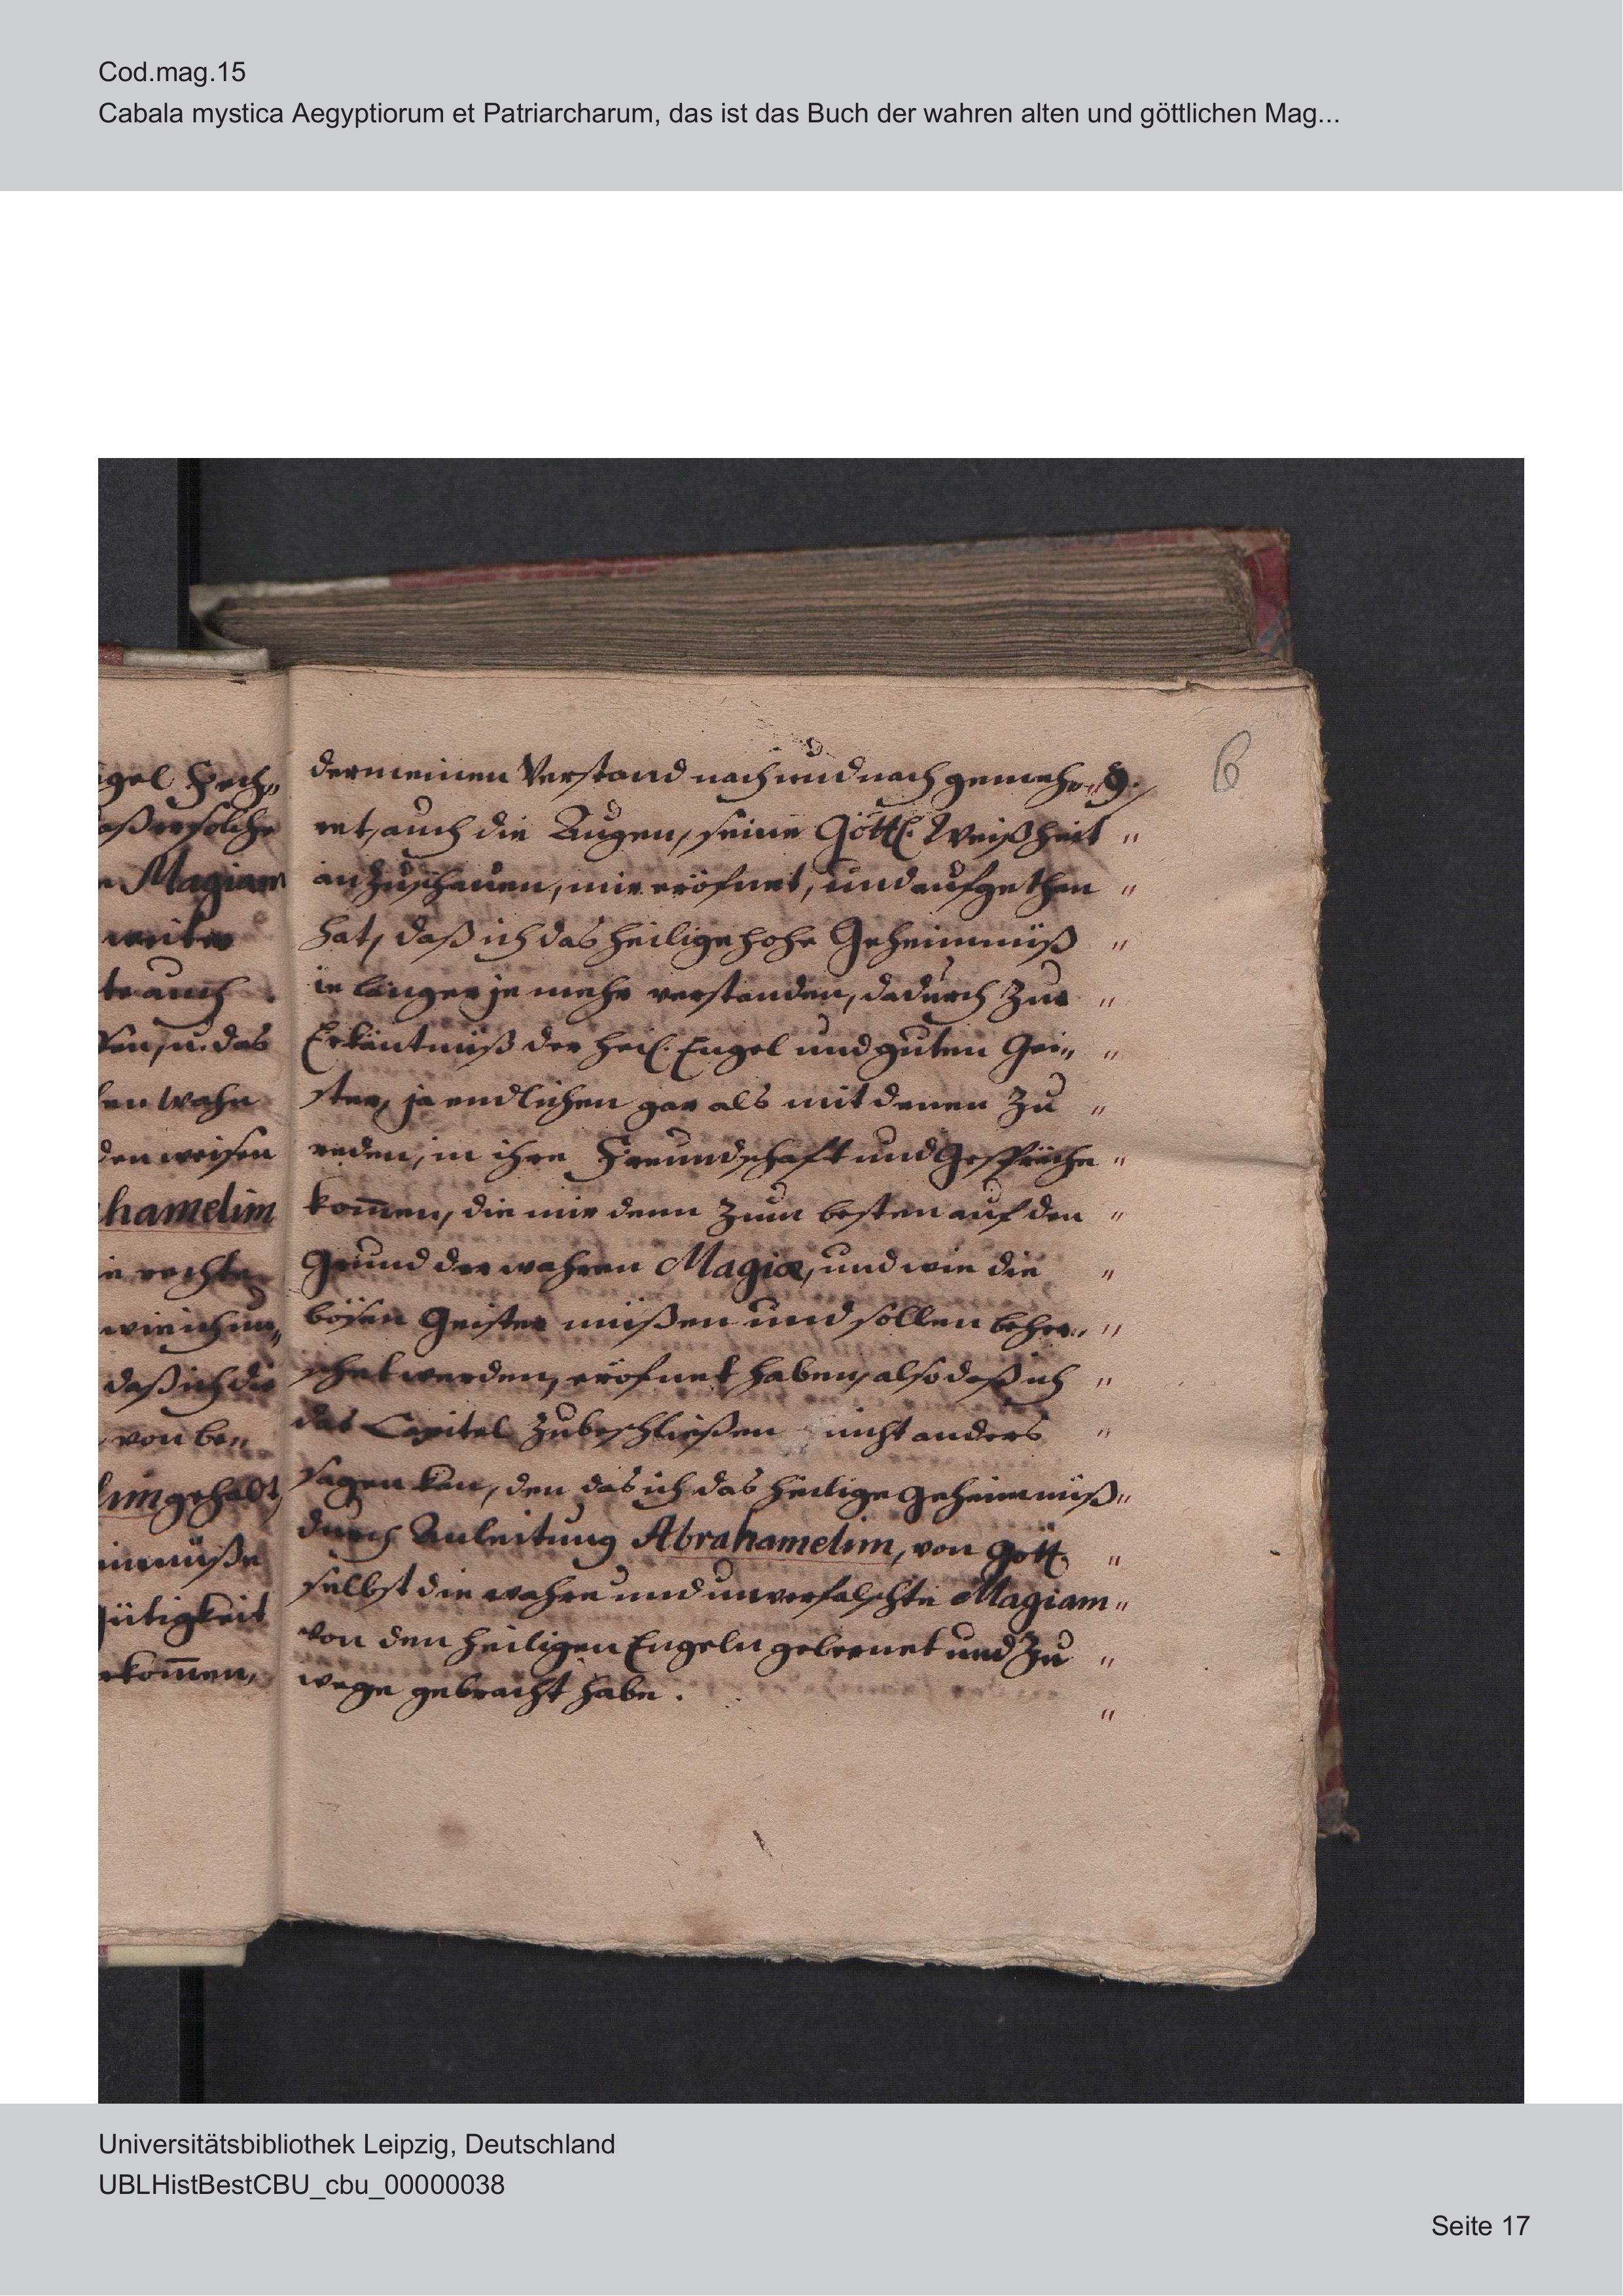 Cod.mag.15
Cabala mystica Aegyptiorum et Patriarcharum, das ist das Buch der wahren alten und göttlichen Mag...
6
dermeinen Verstand nach und nach gemeh„ 9.
ret, auch die Augen, seine Göttl. Weißheit „
anzuschauen, mir eröfnet, und aufgethan „
hat, daß ich das heilige hohe Geheimnüß „
ie länger je mehr verstanden, dadurch zur „
Erkäntnüß der heil. Engel und guten Gei„ „
ster, ja endlichen gar als mit denen zu „
reden, in ihre Freundschaft und Gespräche „
kom̅en, die mir denn zum besten auf den „
Grund der wahren Magiæ, und wie die „
bösen Geister müßen und sollen beher„ „
schet werden, eröfnet haben, also daß ich „
das Capitel zubeschließen nicht anders „
sagen kan, den das ich das heilige Geheimnüß „
durch Anleitung Abrahamelim, von Gott „
selbst die wahre und unverfalschte Magiam „
von den heiligen Engeln gelernet und zu „
wege gebracht habe. „
gel
aß er solche
Magiam
weiter
te auch
u. das
en wahn
den weisen
hamelim
rechte
wie ich un„
daß ich die
von be„
lim gehabt,
imnüße
gütigkeit
kom̅en,
Universitätsbibliothek Leipzig, Deutschland
UBLHistBestCBU_cbu_00000038
Seite 17